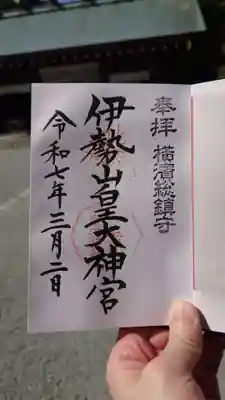 奉拝 横濱総鎮守
伊勢山皇大神宮
令和七年三月二日